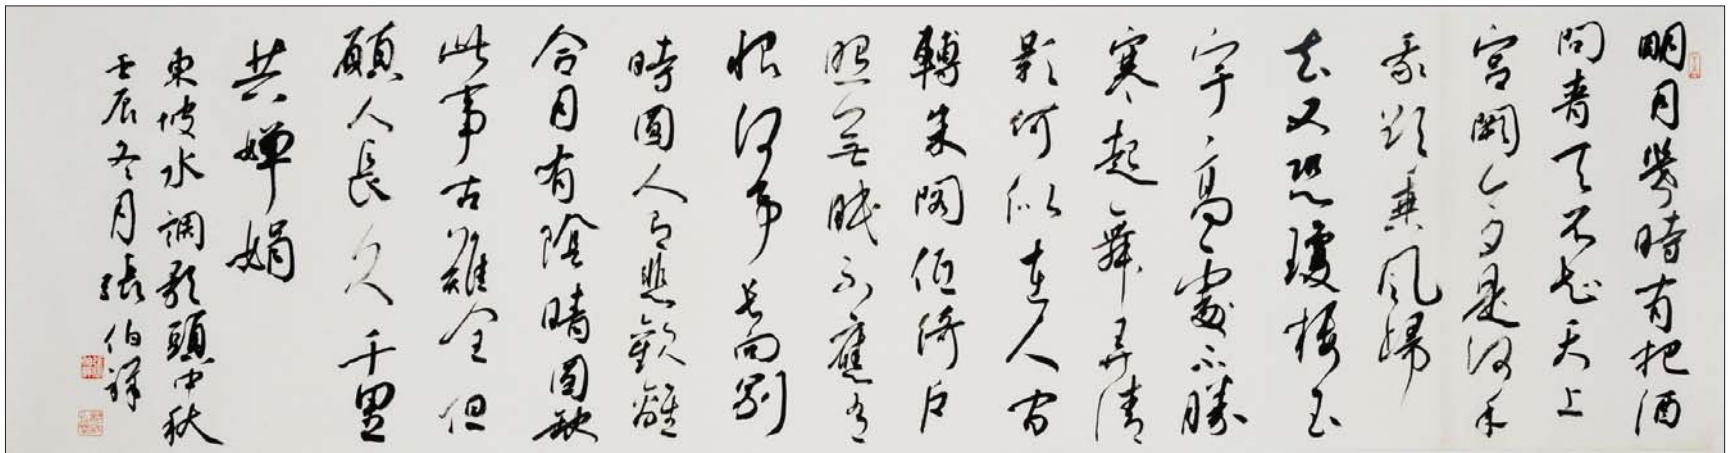 明月幾時有把酒
問青天不知天上
宮闕今夕是何年
我欲乘風歸
去又恐瓊樓玉
宇高處不勝
寒起舞弄清
影何似在人間
轉朱閣低綺戶
照無眠不應有
恨何事長向別
時圓人有悲歡離
合月有陰晴圓缺
此事古難全但
願人長久千里
共嬋娟
東坡水調歌頭中秋
壬辰冬月張伯